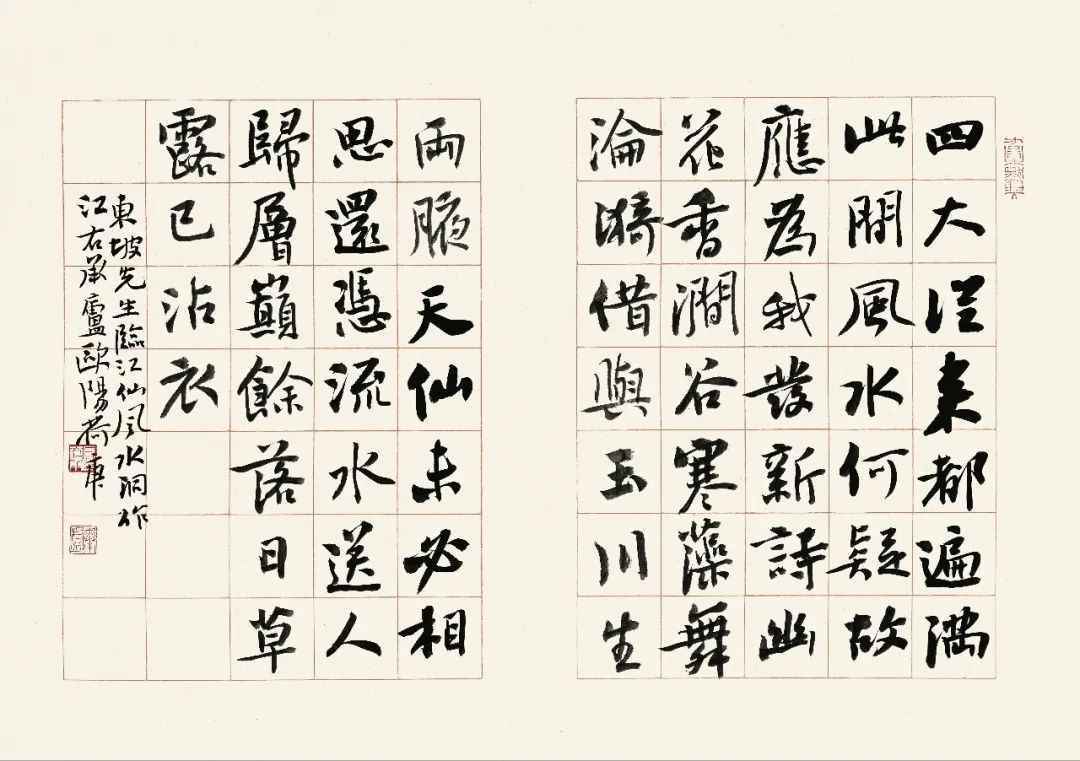 四大從来都遍滿
此間風水何疑故
應為我發新詩幽
花香澗谷寒藻舞
淪漪借與玉川生
兩腋天仙未必相
思還憑流水送人
歸層巔餘落日草
露已沾衣
東坡先生臨江仙風水洞作
江右承廬歐陽荷庚